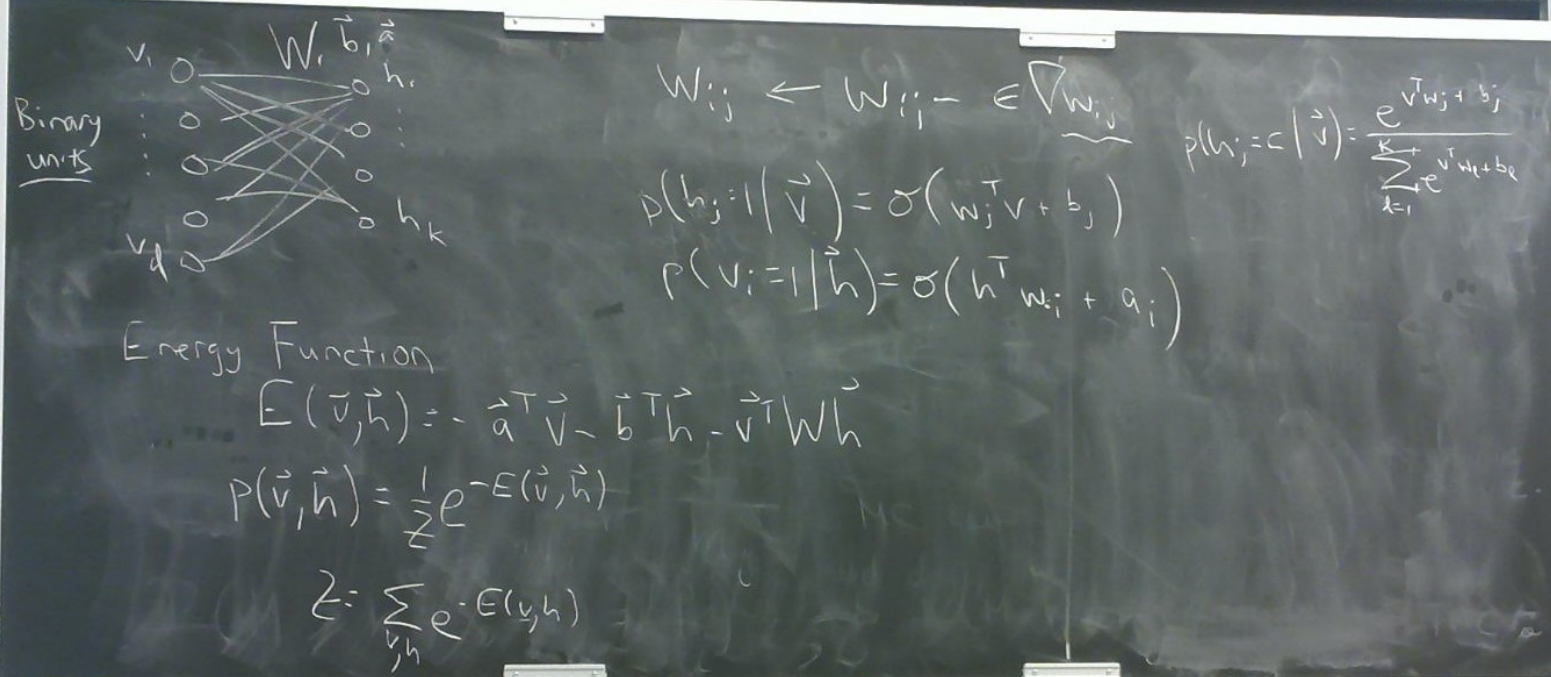 W, b⃗, a⃗
v₁
h₁
Binary
units
h_k
v_d
Energy Function
E(v⃗,h⃗) = - a⃗ᵀv⃗ - b⃗ᵀh⃗ - v⃗ᵀWh⃗
p(v⃗,h⃗) = 1/Z e^{-E(v⃗,h⃗)}
Z = Σ_{v,h} e^{-E(v,h)}
W_{ij} ← W_{ij} - ϵ∇W_{ij}
p(h_j=1|v⃗) = σ(w_jᵀv + b_j)
p(v_i=1|h⃗) = σ(hᵀw_{:i} + a_i)
p(h_j=c|v⃗) = e^{vᵀw_j + b_j} / Σ_{l=1}^{K} e^{vᵀw_l + b_l}